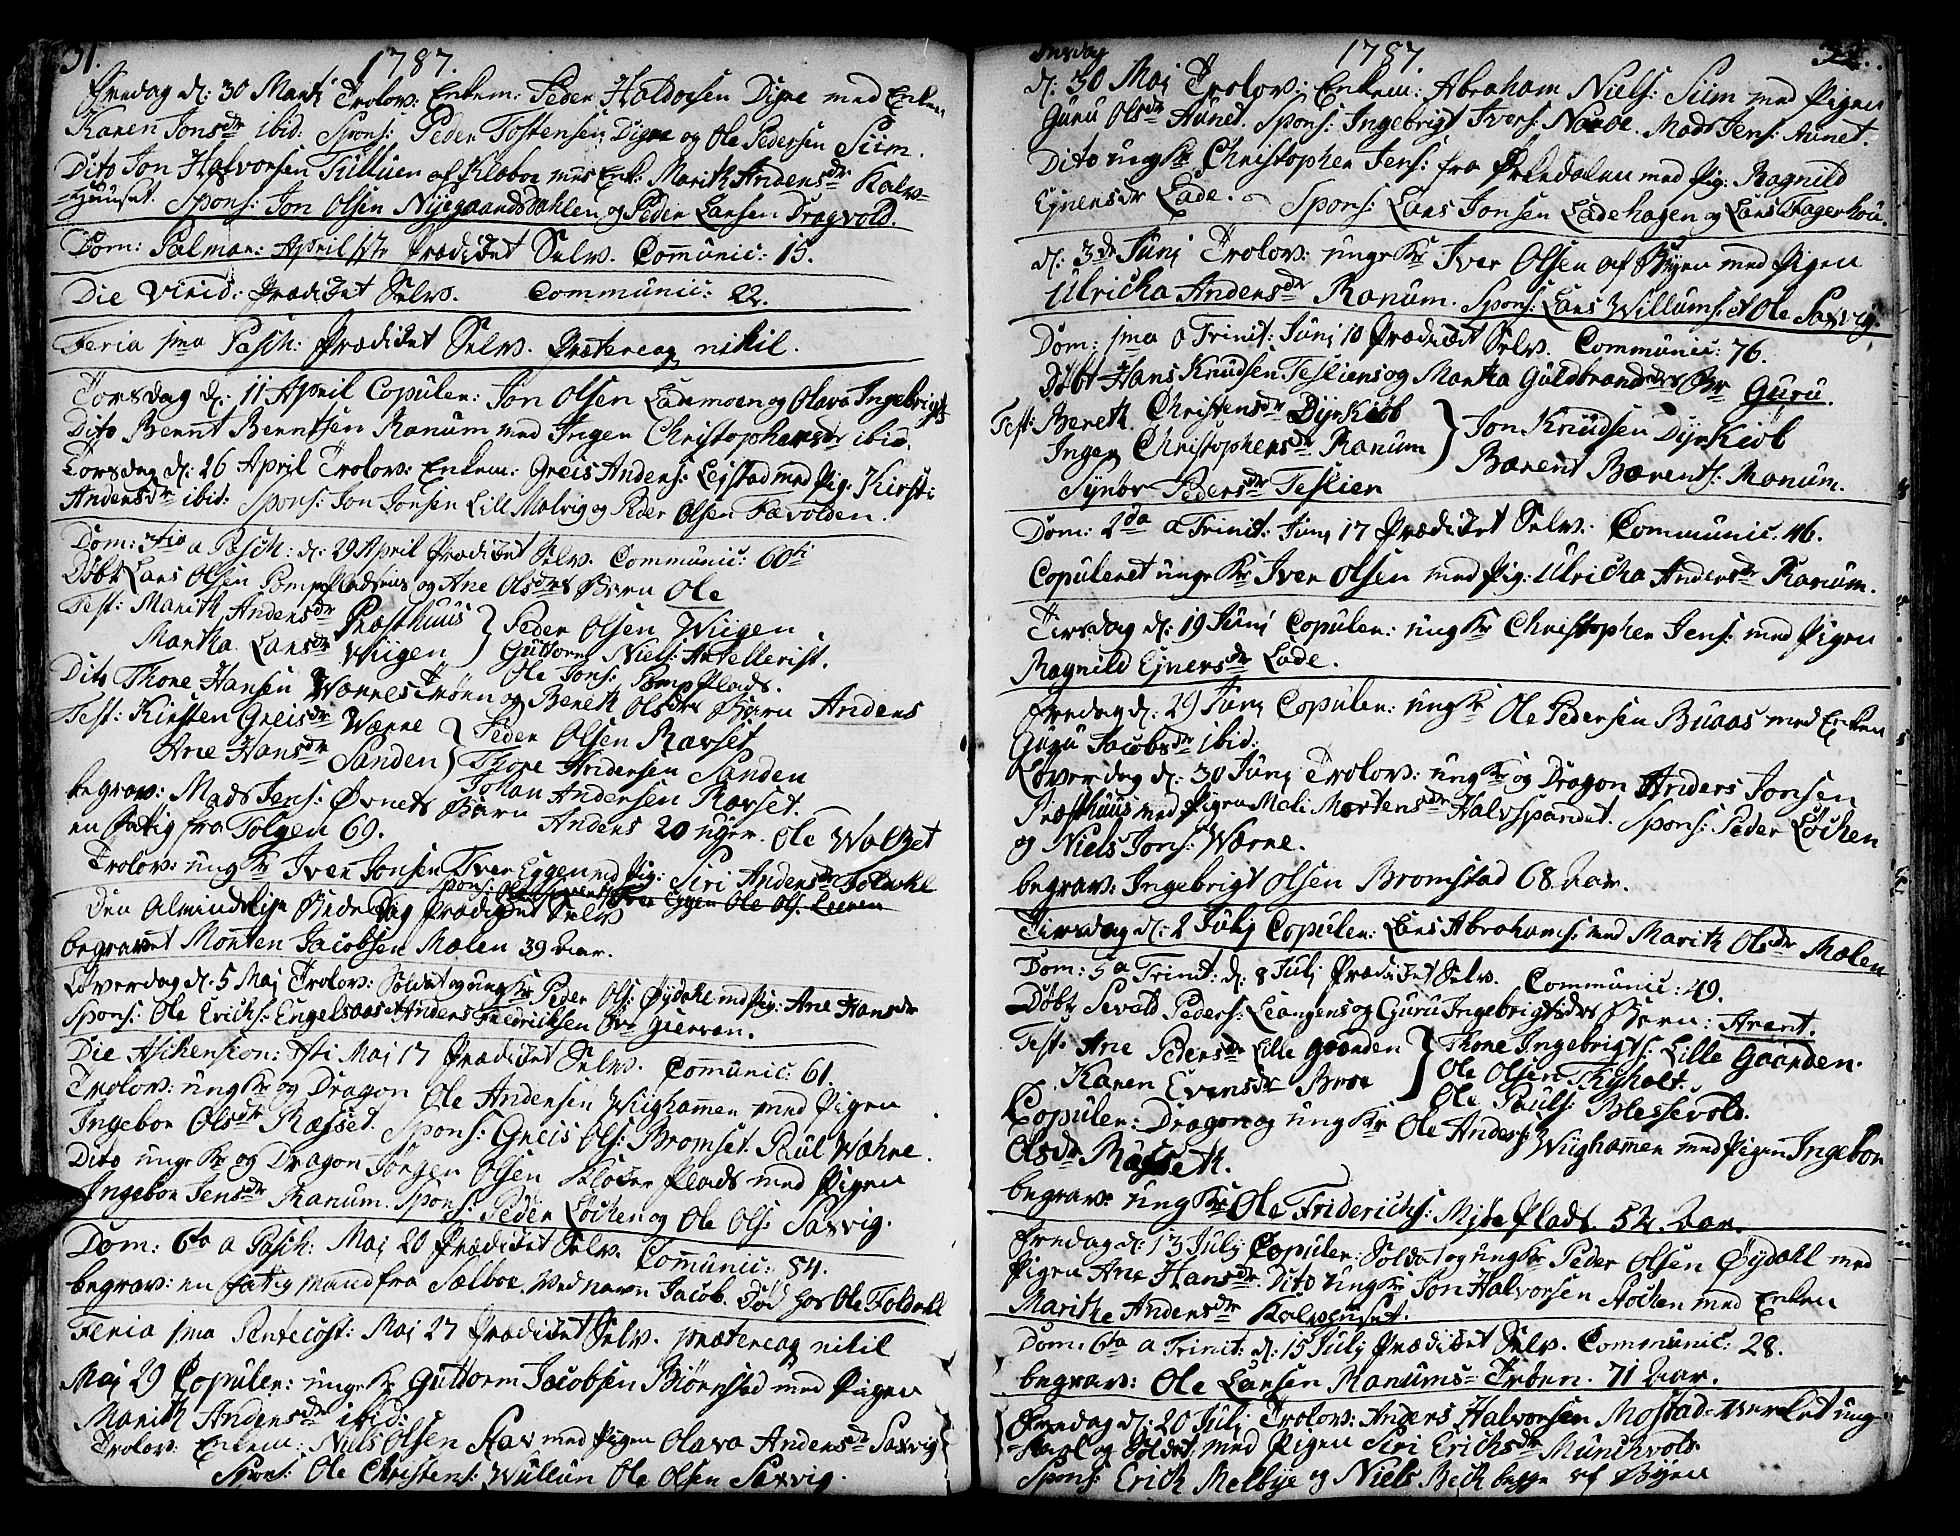 31.
1787.
Fredag d: 30 Martj Trolov: Enkem: Peder Haldorsen Digre med Enken
Karen Jonsdr ibid: Spons: Peder Tostensen Digre og Ole Pedersen Siim.
Dito Jon Halvorsen Tilluer af Klæboe med Enk: Marith Andersdr Kalv-
-huuset. Spons: Jon Olsen Nyegaardsdahlen og Peder Larsen Dragvold.
Dom: Palmar: April 1ste Prædiket Selv. Com̅unic: 15.
Die Virid: Prædiket Selv. Communic: 22.
Feria 1ma Pasch: Prædiket Selv. Prætereaq nihil.
Torsdag d: 11 April Copuler: Jon Olsen Lademoen og Olava Ingebrigtsdr
Dito Bernt Berntsen Ranum med Inger Christophersdr ibid.
Torsdag d: 26 April Trolov: Enkem: Greis Anders: Leystad med Pig: Kirsti
Andersdr ibid: Spons: Jon Jonsen Lill Malvig og Peder Olsen Fævolden.
Dom: 3tia a Pasch: d: 29 April Prædiket Selv. Communic: 60ti
Døbt Lars Olsen Pompepladsens og Ane Olsdrs Barn Ole
Test: Marith Andersdr Præsthuus } Peder Olsen Wiigen
Martha Larsdr Wiigen } Guttorm Niels: Artellerist.
Ole Jons: Pomp Plads.
Dito Thore Hansen Wærnes Trøen og Bereth Olsdrs Barn Anders
Test: Kirsten Greisdr Wærne } Peder Olsen Ravset
Ane Hansdr Sanden } Thore Andersen Sanden
Johan Andersen Ravset.
begrav: Mads Jens: Øvnets Barn Anders 20 uger. Ole Walset
en fatig fra Tolgen 69.
Trolov: ung Kr Iver Jonsen Tver Eggen md Pig: Siri Andersdr Foldahl
Spons: Tver Eggen Ole Ols: Leeren
Den Almindelige Bededag Prædiket Selv
begravet Morten Jacobsen Mælen 39 Aar.
Løverdag d: 5 Maj Trolov: Soldat og ung Kr Peder Ols: Øydahl md Pig: Ane Hansdr
Spons: Ole Erichs: Engelsaas et Anders Fredrichsen Øvr Gierven.
Die Ashension: Xsti Maj 17 Prædiket Selv. Com̅unic: 61.
Trolov: ung Kr og Dragon Ole Andersen Wiigham̅er med Pigen
Ingebor Olsdr Ræsset. Spons: Greis Ols: Bromset. Paul Wahre.
Dito unge Kr og Dragon Jørgen Olsen Kloster Plads med Pigen
Ingebor Jensdr Ranum. Spons: Peder Løchen og Ole Ols: Saxvig.
Dom: 6ta a Pasch: Maj 20 Prædiket Selv. Com̅unic: 84.
begrav: en fatig Mand fra Sælboe, ved navn Jacob. Død hos Ole Foldahl
Feria 1ma Pentecost: Maj 27 Prædiket Selv. prætereaq nihil
Maj 29 Copuler: unge Kr Guttorm Jacobsen Biørnstad med Pigen
Marith Andersdr ibid:
Trolov: Enkem: Niels Olsen Stav med Pigen Olava Andersdr Saxvig
Spons: Ole Christens: Wullun Ole Olsen Saxvig.
1787
Onsdag
d: 30 Maj Trolov: Enkem: Abraham Niels: Siim med Pigen
Guru Olsdr Aunet. Spons: Ingebrigt Ivers: Naroe. Mads Jens: Aunet.
Dito ung Kr Christopher Jens: fra Ørkedalen med Pig: Ragnild
Ejnersdr Lade. Spons: Lars Jonsen Ladehagen og Lars Fagerhou.
d: 3de Junj Trolov: unge Kr Iver Olsen af Byen med Pigen
Ulricha Andersdr Ranum. Spons: Lars Willums: et Ole Saxvig.
Dom: 1ma a Trinit: Junj 10 Prædiket Selv. Communic: 76.
Døbt Hans Knudsen Tesliens og Martha Guldbrandsdrs Br Guru.
Test: Bereth Christensdr Dyrkiøb } Jon Knudsen Dyrkiøb
Inger Christophersdr Ranum } Bærent Bærents: Ranum.
Synør Pedersdr Teslien
Dom: 2da a Trinit: Junj 17 Prædiket Selv: Communic. 46.
Copuleret unge Kr Iver Olsen med Pig: Ulricha Andersdr Ranum.
Tirsdag d: 19 Junj Copuler: ung Kr Christopher Jens: med Pigen
Ragnild Ejnersdr Lade.
Fredag d: 29 Junj Copuler: ung Kr Ole Pedersen Buaas med Enken
Guru Jacobsdr ibid:
Løverdag d: 30 Junj Trolov: ung Kr og Dragon Anders Jonsen
Præsthuus med Pigen Mali Mortensdr Halvspandet. Spons: Peder Løchen
og Niels Jons: Wærne.
begrav: Ingebrigt Olsen Bromstad 68 Aar.
Tirsdag d: 2 Julj Copuler: Lars Abrahams: med Marith Olsdr Mælen
Dom: 5a Trinit: d: 8 Julj Prædiket Selv. Communic: 49.
Døbt Sevald Peders: Leangens og Guru Ingebrigtsdrs Barn: Arent.
Test: Ane Pedersdr Lille Gaarden } Thore Ingebrigts: Lille Gaarden.
Karen Evensdr Broe } Ole Olsen Thyholt.
Ole Pauls: Blessevold.
Copuler: Dragon og ung Kr Ole Anders: Wiigham̅er med Pigen Ingebor
Olsdr Ræsseth.
begrav: ung Kr Ole Friderichs: Mjøe Plads 52 Aar.
Fredag d: 13 Julj Copuler: Soldat og ung Kr Peder Olsen Øydahl med
Pigen Ane Hansdr. Dito ung Kr Jon Halvorsen med Enken
Marithe Andersdr Kalvhuset.
Dom: 6ta a Trinit: d: 15 Julj Prædiket Selv. Communic: 28.
begrav: Ole Larsen Ranums-Trøen. 71 Aar.
Fredag d: 20 Julj Trolov: Anders Halvorsen Mostad-Verket ung-
-karl og Soldat med Pigen Siri Erichsdr Munchvold
Spons: Erich Melbye og Niels Beck begge af Byen